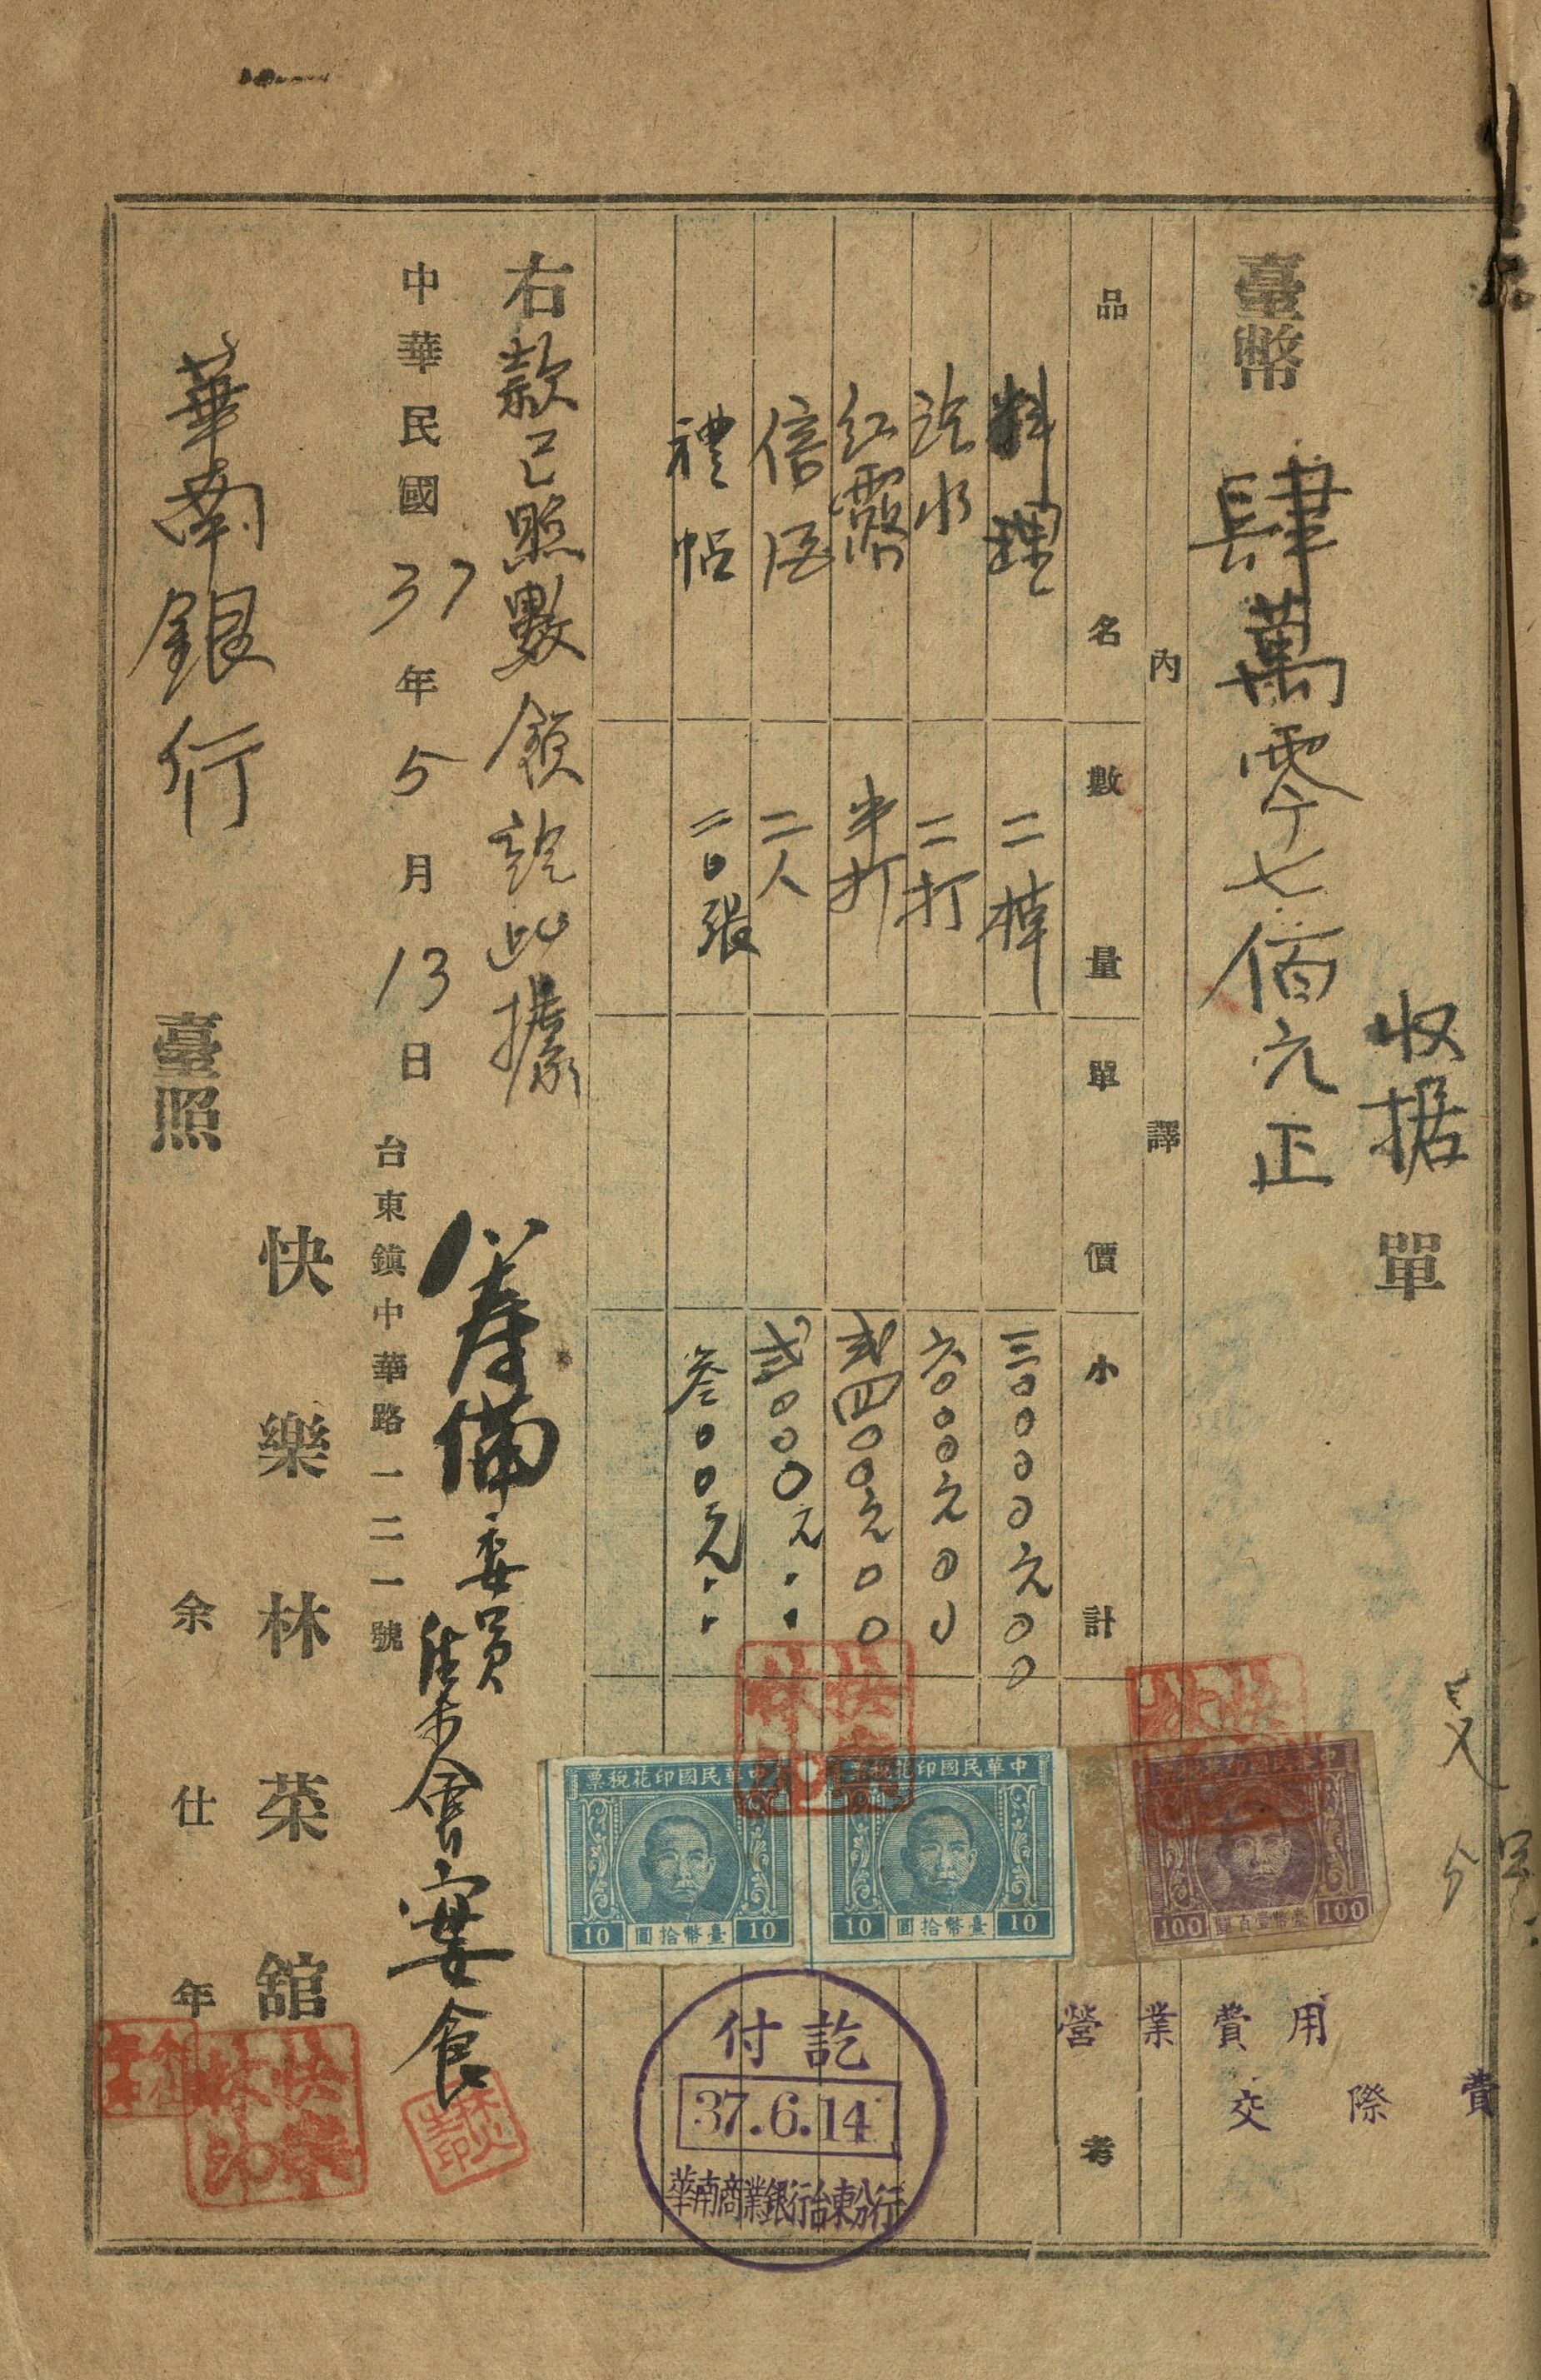 收据單
臺幣 肆萬零七佰元正
內 譯
品名 數量 單價 小計 考
料理 二棹 三0000元00
汽水 二打 六000元00
紅露 半打 弍四00元00
倍酒 二人 弍000元··
禮帖 二0張 叁00元··
右款已照數領訖此據
中華民國37年5月13日
台東鎮中華路一二一號
籌備委員
會宴食
快樂林菜舘
余仕年
華南銀行 臺照
中華民國印花稅票
100 臺幣壹百圓 100
中華民國印花稅票
10 臺幣拾圓 10
中華民國印花稅票
10 臺幣拾圓 10
營業費用
交際費
付訖
37.6.14
華南商業銀行台東分行
快樂林印